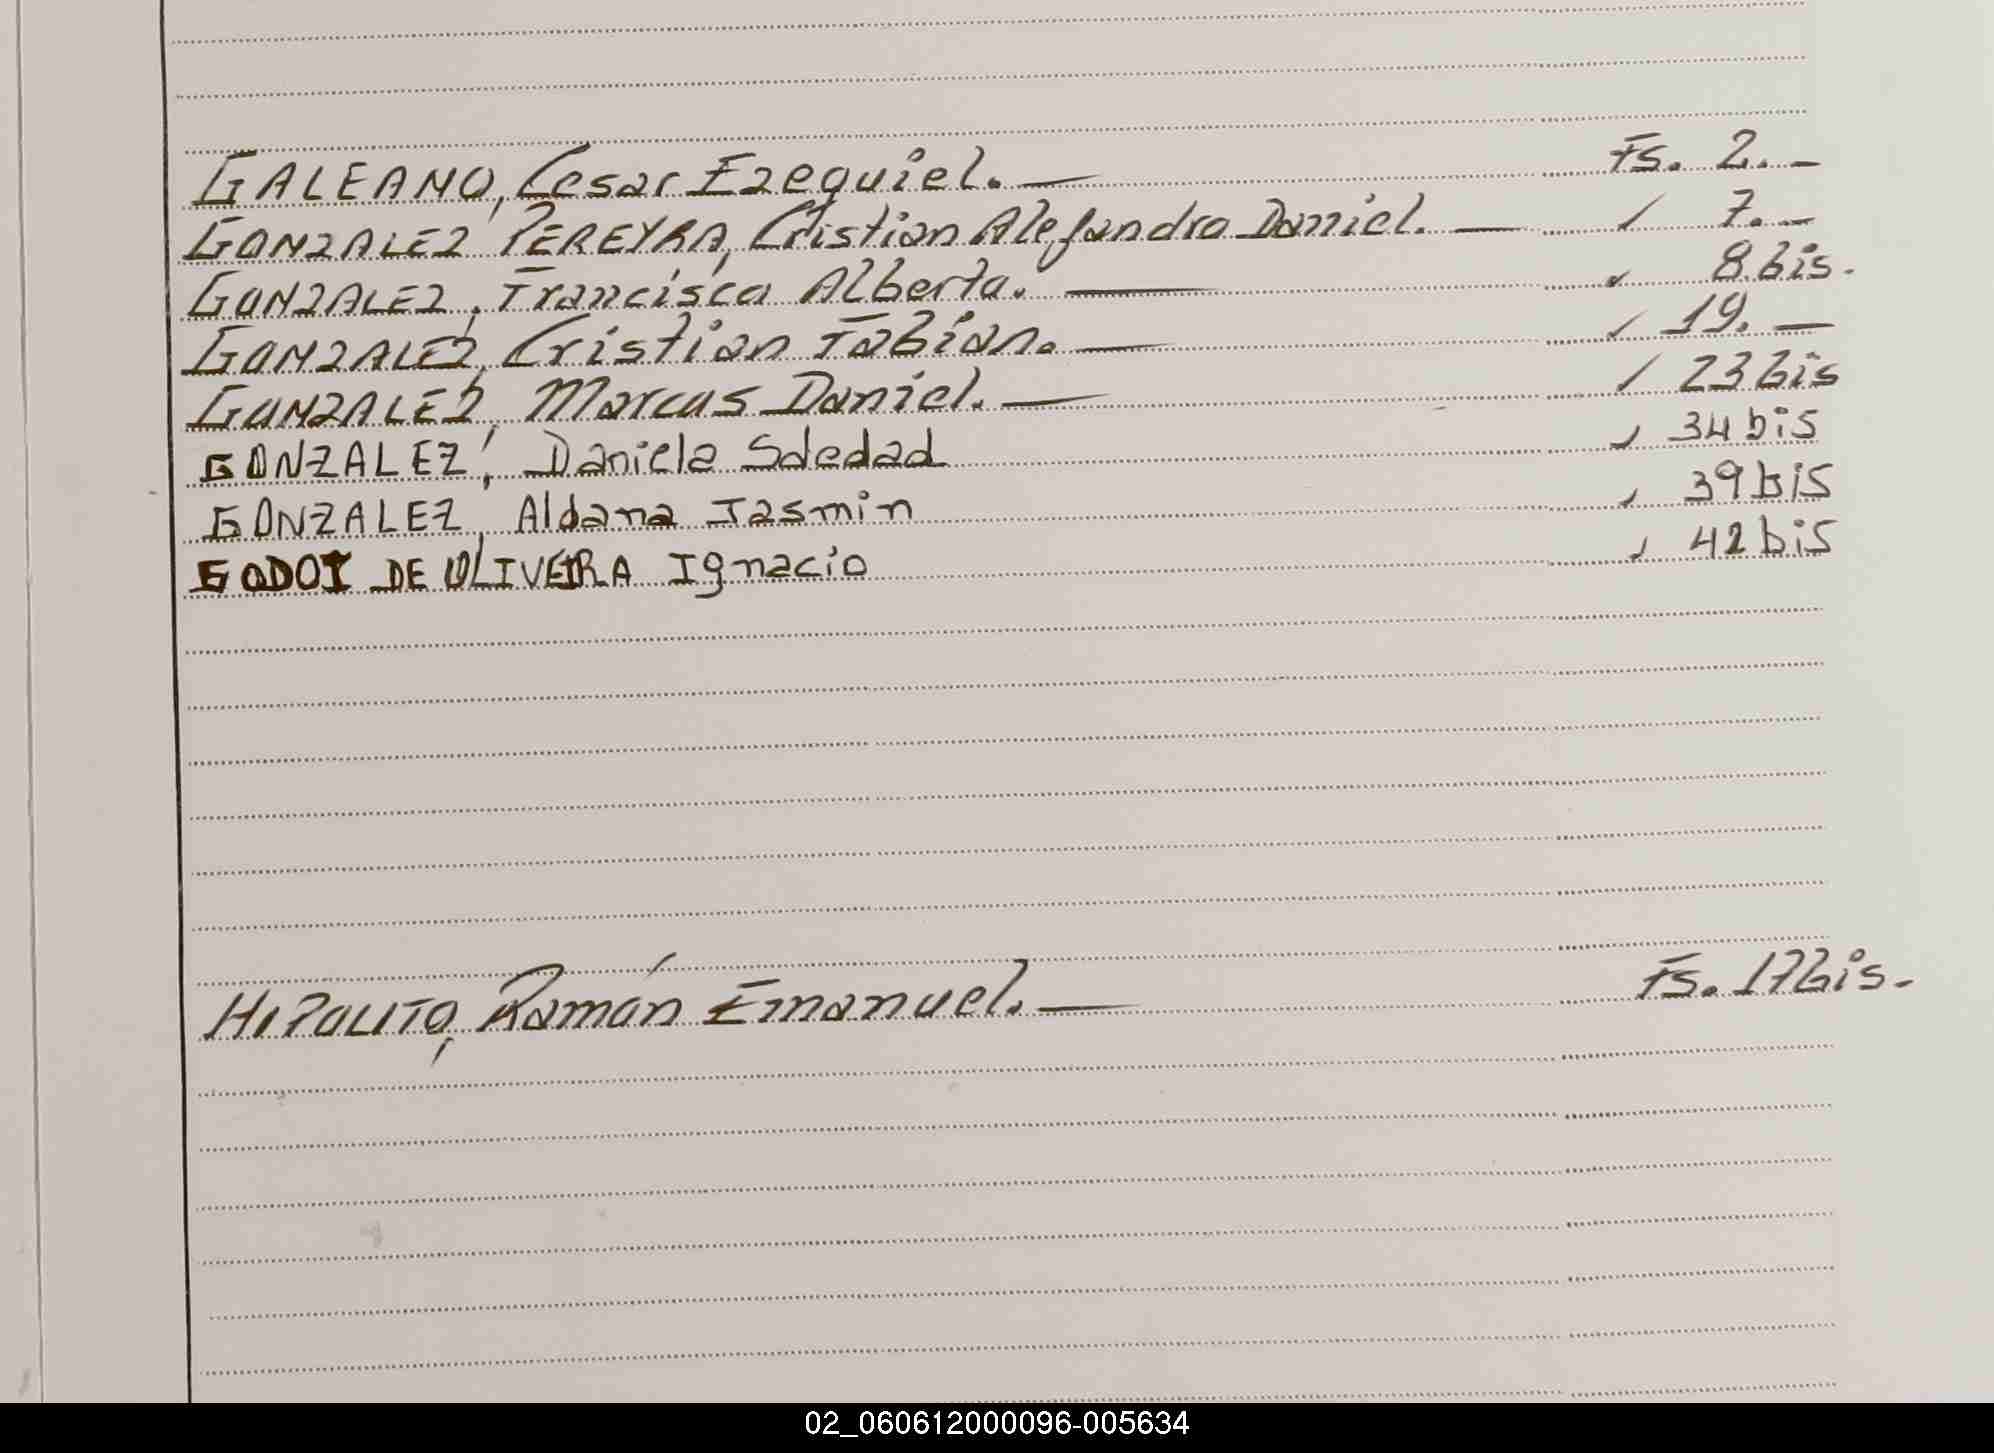 GALEANO, Cesar Ezequiel. — Fs. 2. —
GONZALEZ PEREYRA, Cristian Alejandro Daniel. — / 7. —
GONZALEZ, Francisca Alberta. — / 8 bis.
GONZALEZ, Cristian Fabian. — / 19. —
GONZALEZ, Marcos Daniel. — / 23 bis
GONZALEZ, Daniela Soledad / 34 bis
GONZALEZ, Aldana Jasmin / 39 bis
GODOI DE OLIVEIRA Ignacio / 42 bis
HIPOLITO, Ramón Emanuel. — Fs. 17 bis.
02_060612000096-005634